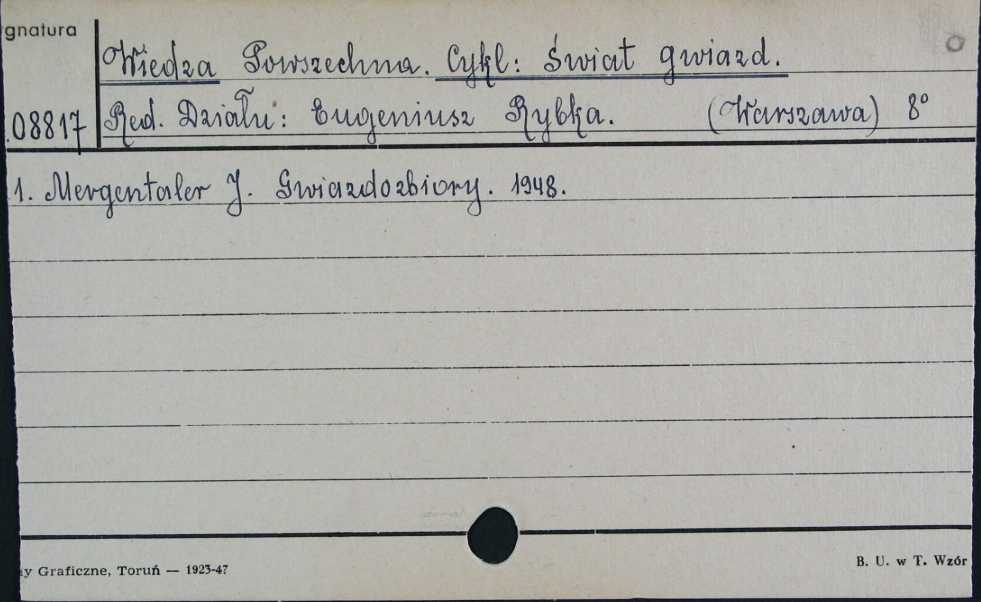 gnatura
Wiedza Powszechna. Cykl: Świat gwiazd.
.08817 Red. Działu: Eugeniusz Rybka. (Warszawa) 8°
1. Mergentaler J. Gwiazdozbiory. 1948.
y Graficzne, Toruń — 1923-47
B. U. w T. Wzór